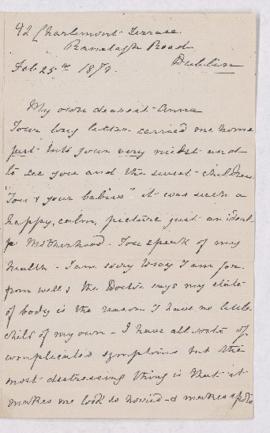 42 Charlemont Terrace
Ranelagh Road
Feb 25th 187 Dublin
My own dearest Anna
Your long letter carried me home
just into your very midst and
to see you and the sweet children
"You & your babies" it was such a
happy, calm, picture just an ideal
of Motherhood. You speak of my
health - I am sorry to say I am far
from well & the Doctor says my state
of body is the reason I have no little
child of my own - I have all sorts of
complicated symptoms but the
most distressing thing is that it
makes me look so horrid & makes a